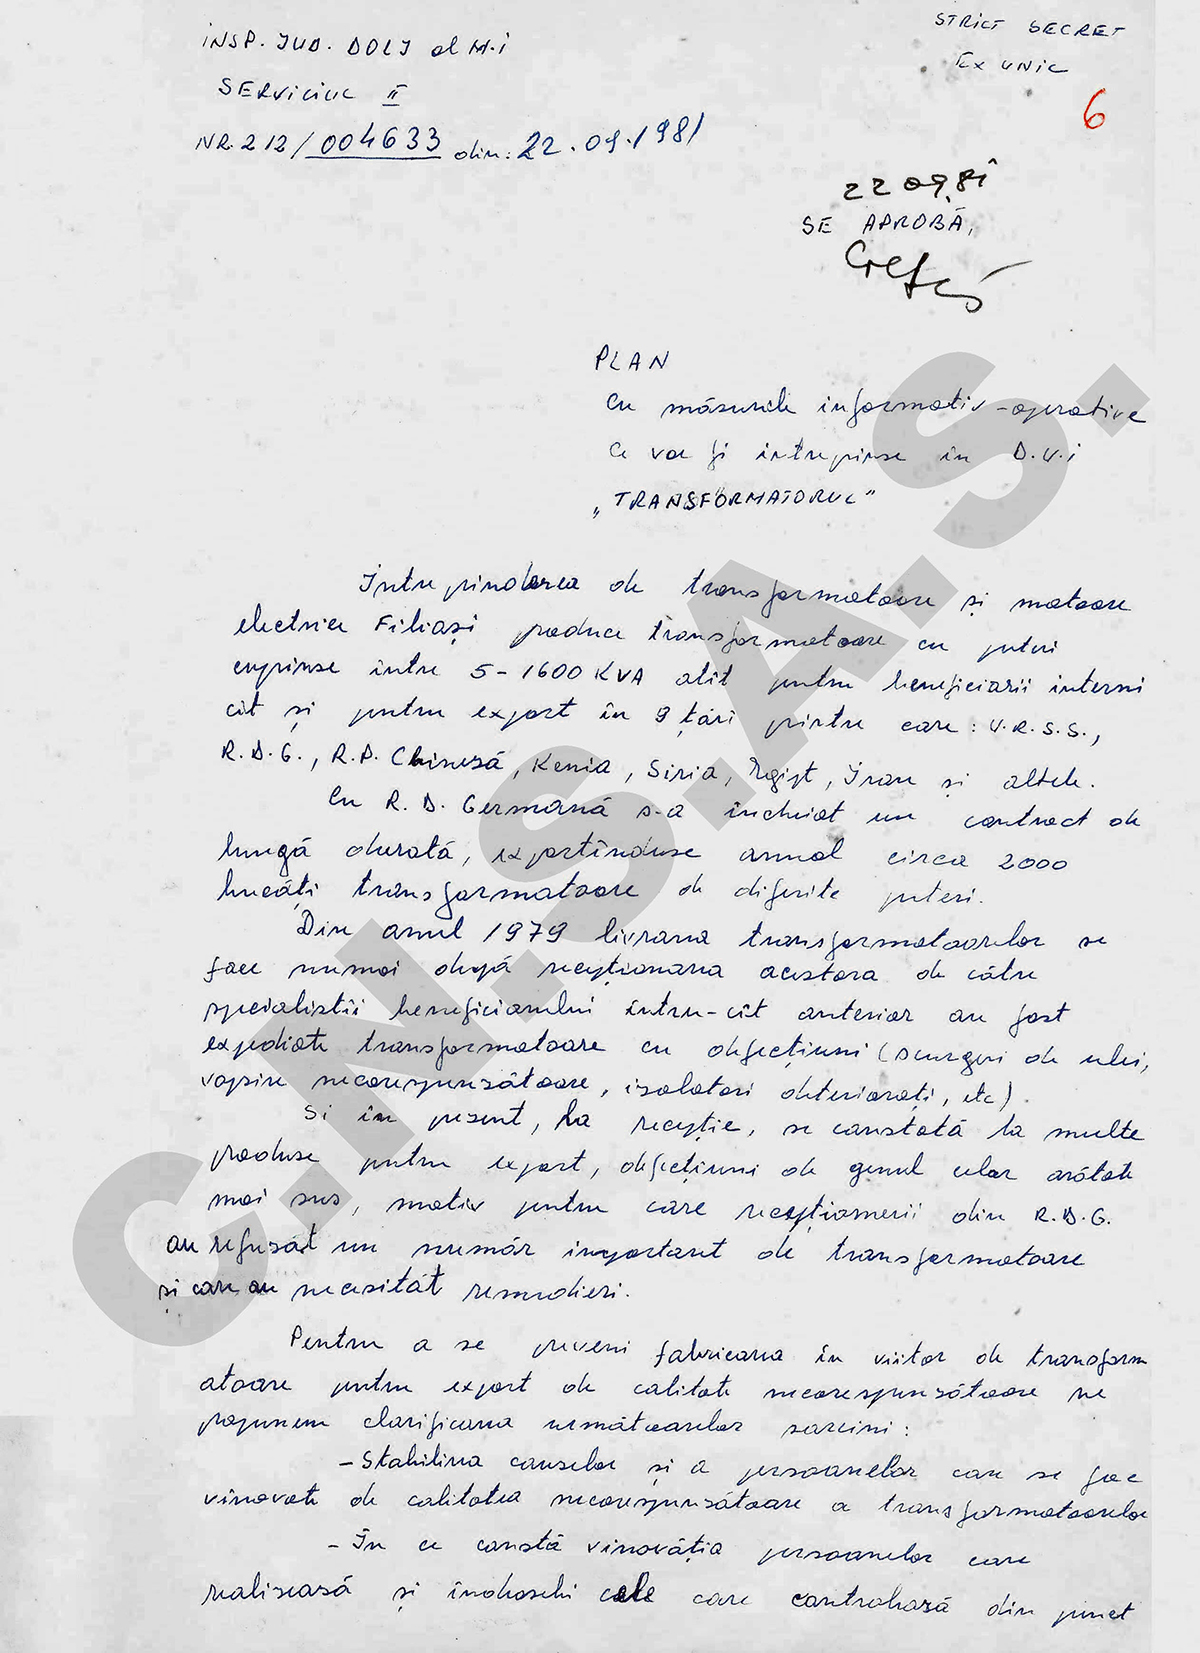 STRICT SECRET
EX UNIC
6
INSP. JUD. DOLJ al M.I
SERVICIUL II
NR. 212/004633 din: 22.09.1981
22 09.81
SE APROBĂ,
PLAN
Cu măsurile informativ-operative
ce vor fi întreprinse în D.U.I
„TRANSFORMATORUL”
Întreprinderea de transformatoare și motoare
electrice Filiași produce transformatoare cu puteri
cuprinse între 5-1600 KVA atît pentru beneficiarii interni
cît și pentru export în 9 țări printre care: U.R.S.S.,
R.D.G., R.P. Chineză, Kenia, Siria, Egipt, Iran și altele.
Cu R.D. Germană s-a încheiat un contract de
lungă durată, exportînduse anual circa 2000
bucăți transformatoare de diferite puteri.
Din anul 1979 livrarea transformatoarelor se
face numai după recepționarea acestora de către
specialiștii beneficiarului întru-cît anterior au fost
expediate transformatoare cu obiecțiuni (scurgeri de ulei,
vopsire necorespunzătoare, izolatori deteriorați, etc).
Si în prezent, la recepție, se constată la multe
produse pentru export, obiecțiuni de genul celor arătate
mai sus, motiv pentru care recepționerii din R.D.G.
au refuzat un număr important de transformatoare
și care au necesitat remedieri.
Pentru a se preveni fabricarea în viitor de transform
atoare pentru export de calitate necorespunzătoare ne
propunem clarificarea următoarelor sarcini:
- Stabilirea cauzelor și a persoanelor care se fac
vinovate de calitatea necorespunzătoare a transformatoarelor
- În ce constă vinovăția persoanelor care
realizează și îndeosebi cele care controlează din punct
C.N.S.A.S.